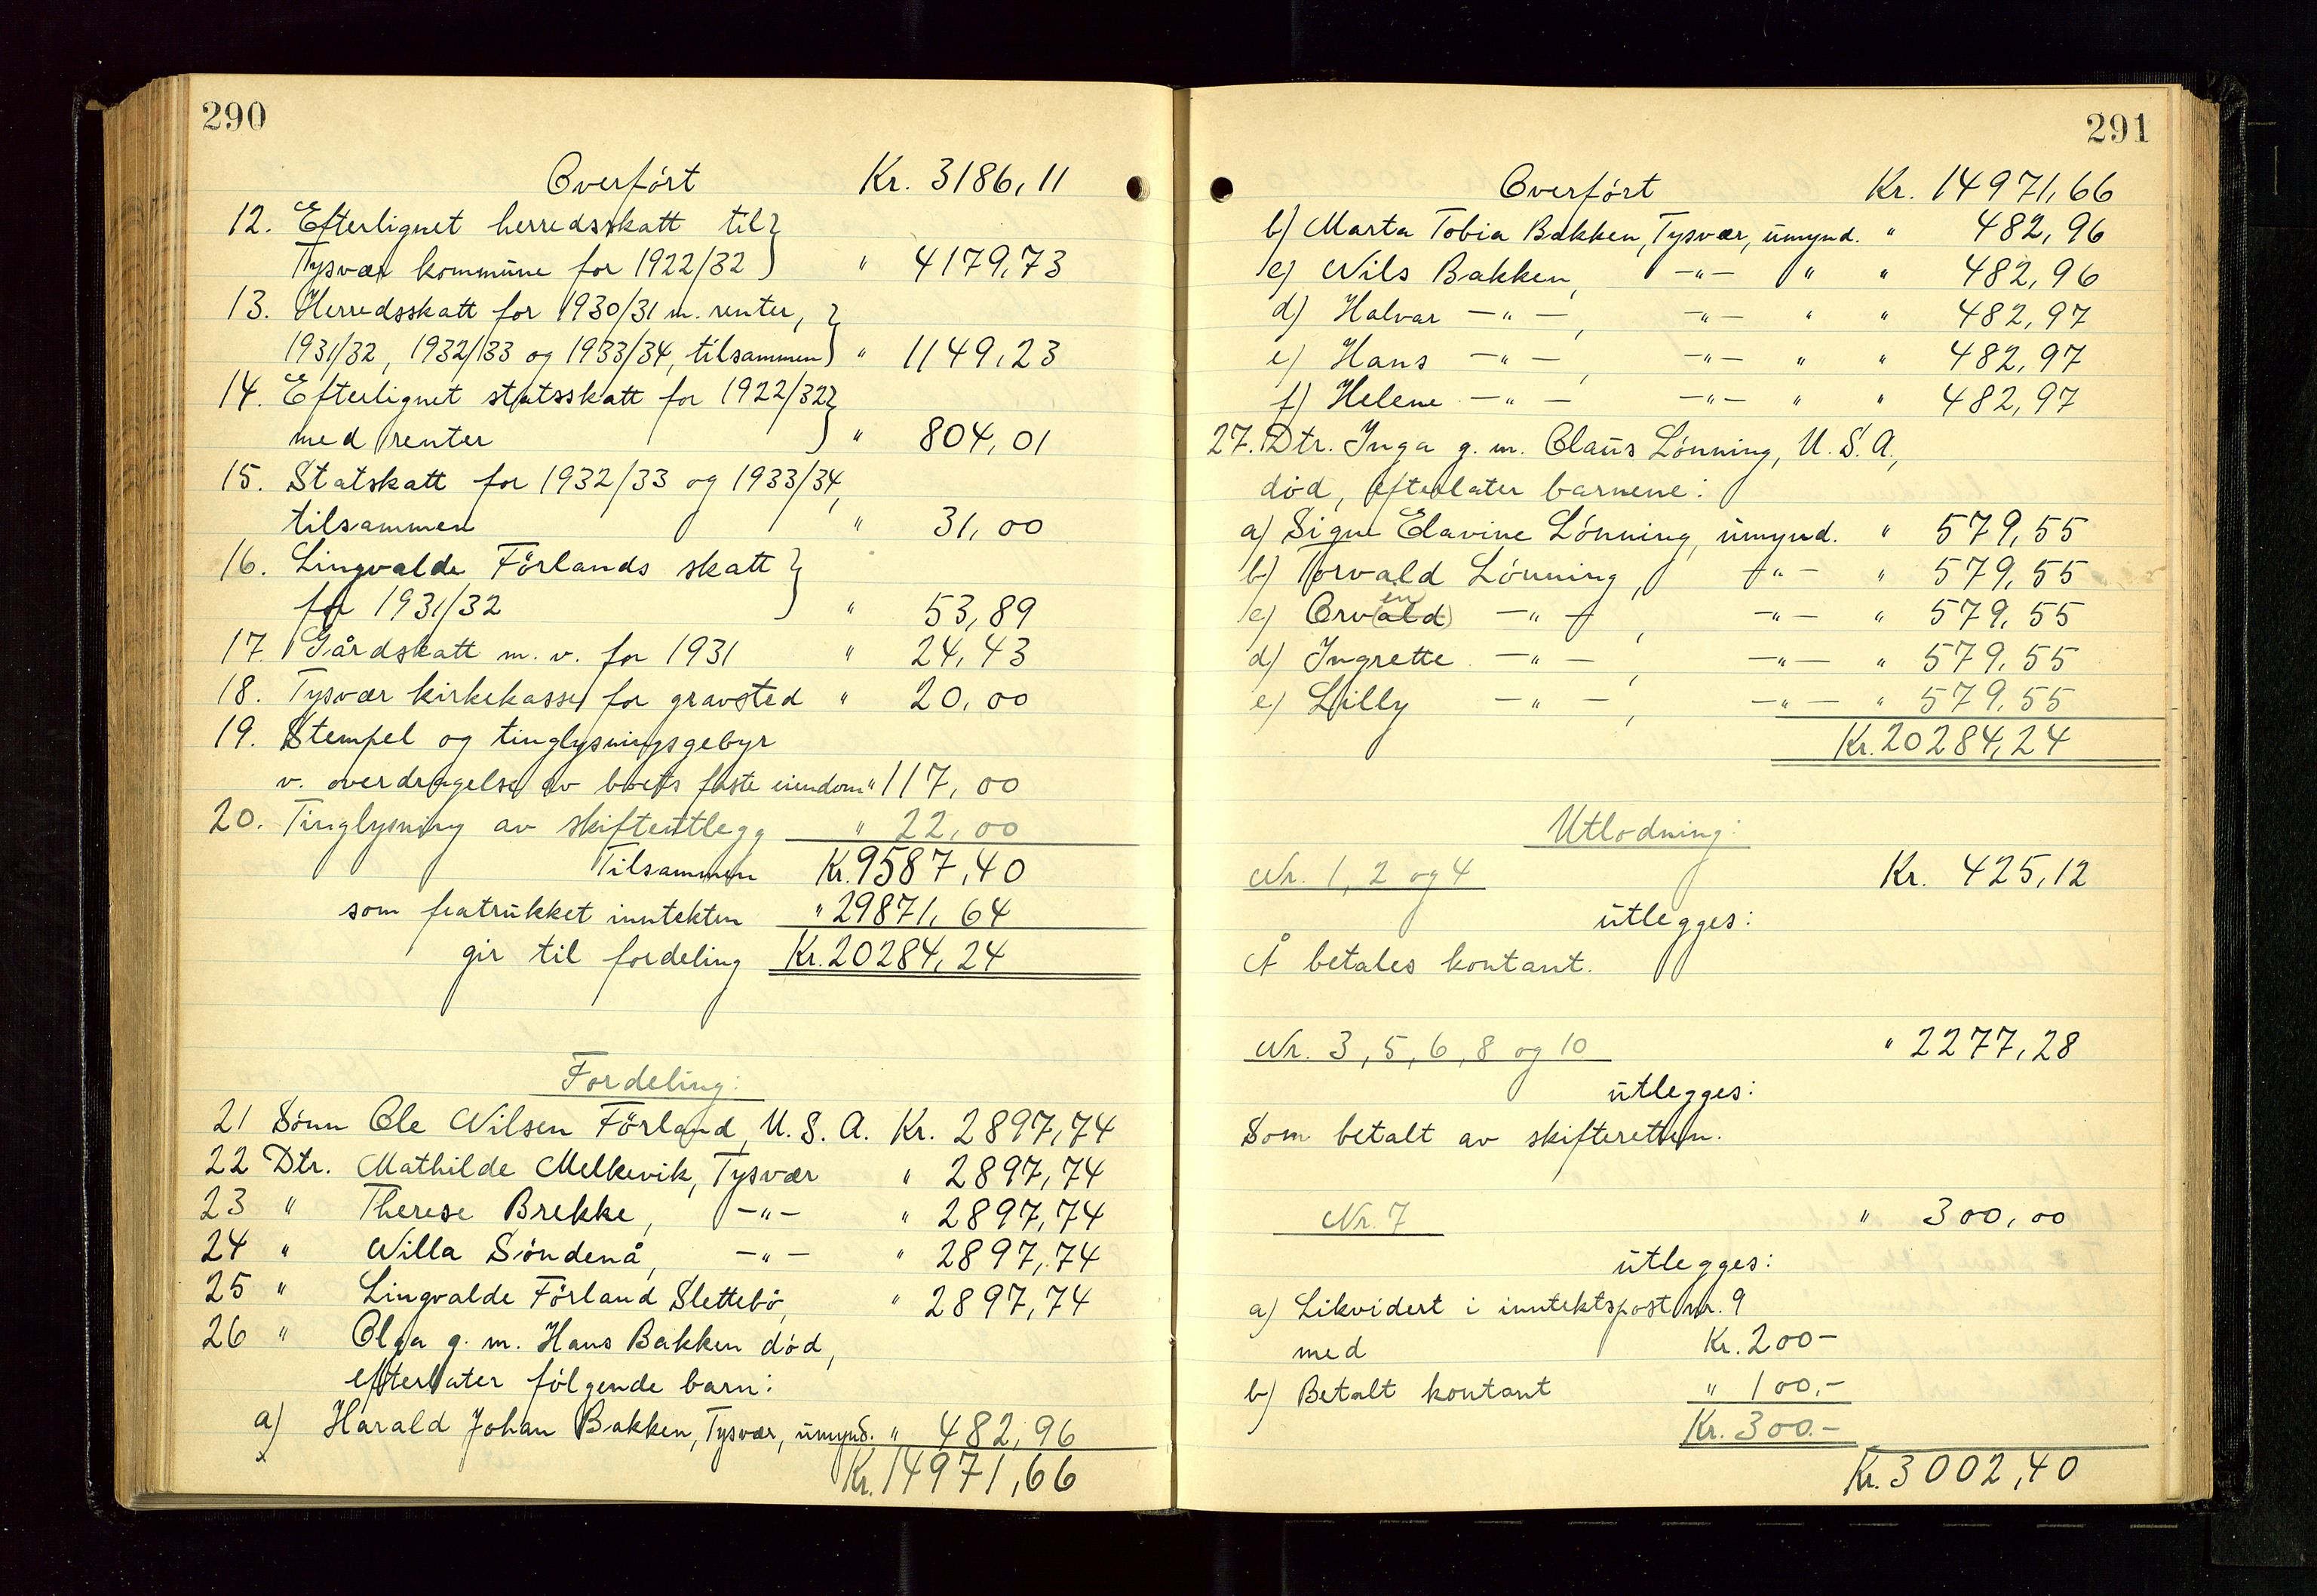 290
Overført Kr. 3186,11
12. Efterlignet herredsskatt til }
Tysvær kommune for 1922/32 } " 4179,73
13. Herredsskatt for 1930/31 m. renter, }
1931/32, 1932/33 og 1933/34, tilsammen } " 1149,23
14. Efterlignet statsskatt for 1922/32 }
med renter } " 804,01
15. Statskatt for 1932/33 og 1933/34,
tilsammen " 31,00
16. Lingvalde Förlands skatt }
for 1931/32 } " 53,89
17. Gårdskatt m. v. for 1931 " 24,43
18. Tysvær kirkekasse for gravsted " 20,00
19. Stempel og tinglysningsgebyr
v. overdragelse av boets faste eiendom " 117,00
20. Tinglysning av skifteutlegg " 22,00
Tilsammen Kr. 9587,40
som fratrukket inntekten " 29871,64
gir til fordeling Kr. 20284,24
Fordeling:
21 Sønn Ole Nilsen Förland, U.S.A. Kr. 2897,74
22 Dtr. Mathilde Melkevik, Tysvær " 2897,74
23 " Therese Brekke, -"- " 2897,74
24 " Nilla Söndenå, -"- " 2897,74
25 " Lingvalde Förland Slettebö, " 2897,74
26 " Olga g. m. Hans Bakken död,
efterlater følgende barn:
a) Harald Johan Bakken, Tysvær, umynd. " 482,96
Kr. 14971,66
291
Overført Kr. 14971,66
b) Marta Tobia Bakken, Tysvær, umynd. " 482,96
c) Nils Bakken, -"- " " 482,96
d) Halvar -"-, -"- " " 482,97
e) Hans -"-, -"- " " 482,97
f) Helene -"- -"- " " 482,97
27. Dtr. Inga g. m. Claus Lønning, U.S.A.,
död, efterlater barnene:
a) Signe Elavine Lönning, umynd. " 579,55
b) Torvald Lönning, -"- " 579,55
en
c) Orv(ald) -"-, -"- " 579,55
d) Ingrette -"-, -"- " 579,55
e) Lilly -"-, -"- " 579,55
Kr. 20284,24
Utlodning:
Nr. 1, 2 og 4 Kr. 425,12
utlegges:
Å betales kontant.
Nr. 3, 5, 6, 8 og 10 " 2277,28
utlegges:
Som betalt av skifteretten.
Nr. 7 " 300,00
utlegges:
a) Likvidert i inntektspost nr. 9
med Kr. 200-
b) Betalt kontant " 100.-
Kr. 300.-
Kr. 3002,40